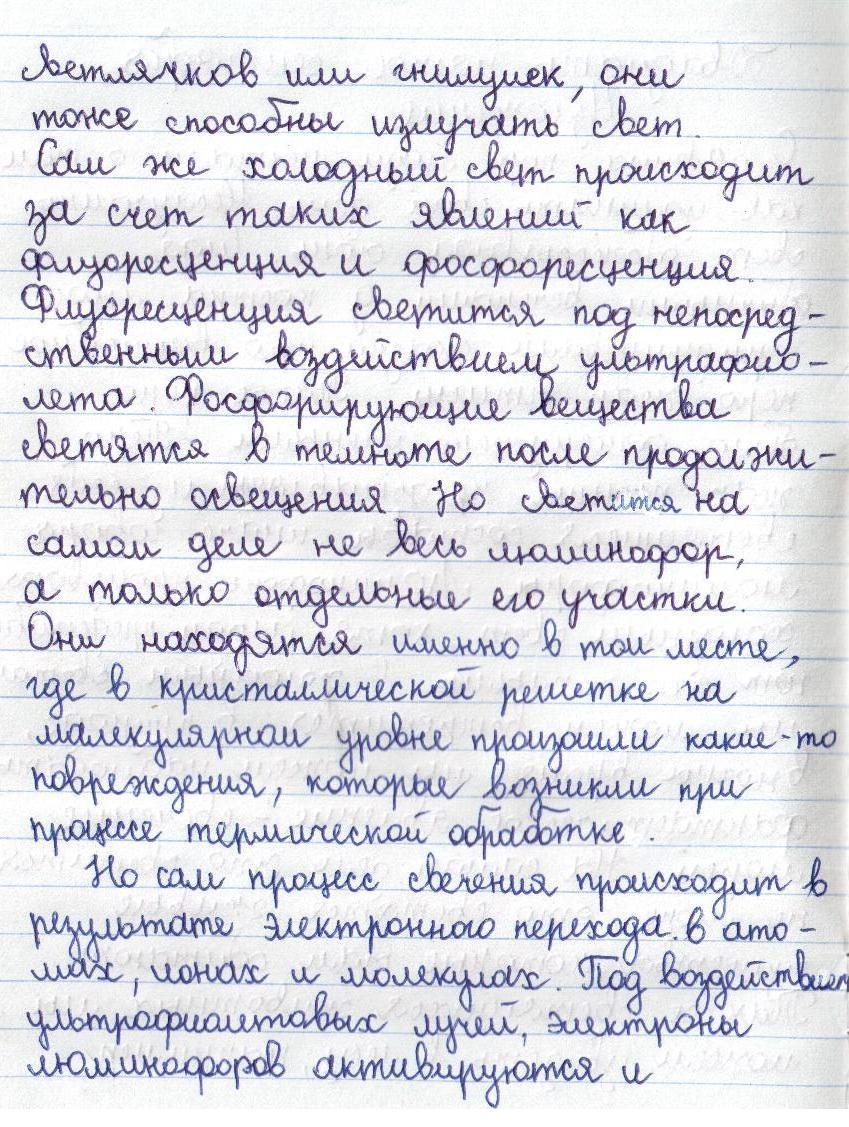 светлячков или гнилушек, они
тоже способны излучать свет.
Сам же холодный свет происходит
за счет таких явлений как
флуоресценция и фосфоресценция.
Флуоресценция светится под непосред-
ственным воздействием ультрафио-
лета. Фосфорирующие вещества
светятся в темноте после продолжи-
тельно освещения Но светится на
самом деле не весь люминофор,
а только отдельные его участки.
Они находятся именно в том месте,
где в кристаллической решетке на
малекулярном уровне произошли какие-то
повреждения, которые возникли при
процессе термической обработке.
Но сам процесс свечения происходит в
результате электронного перехода в ато-
мах, ионах и молекулах. Под воздействием
ультрафиолетовых лучей, электроны
люминофоров активируются и